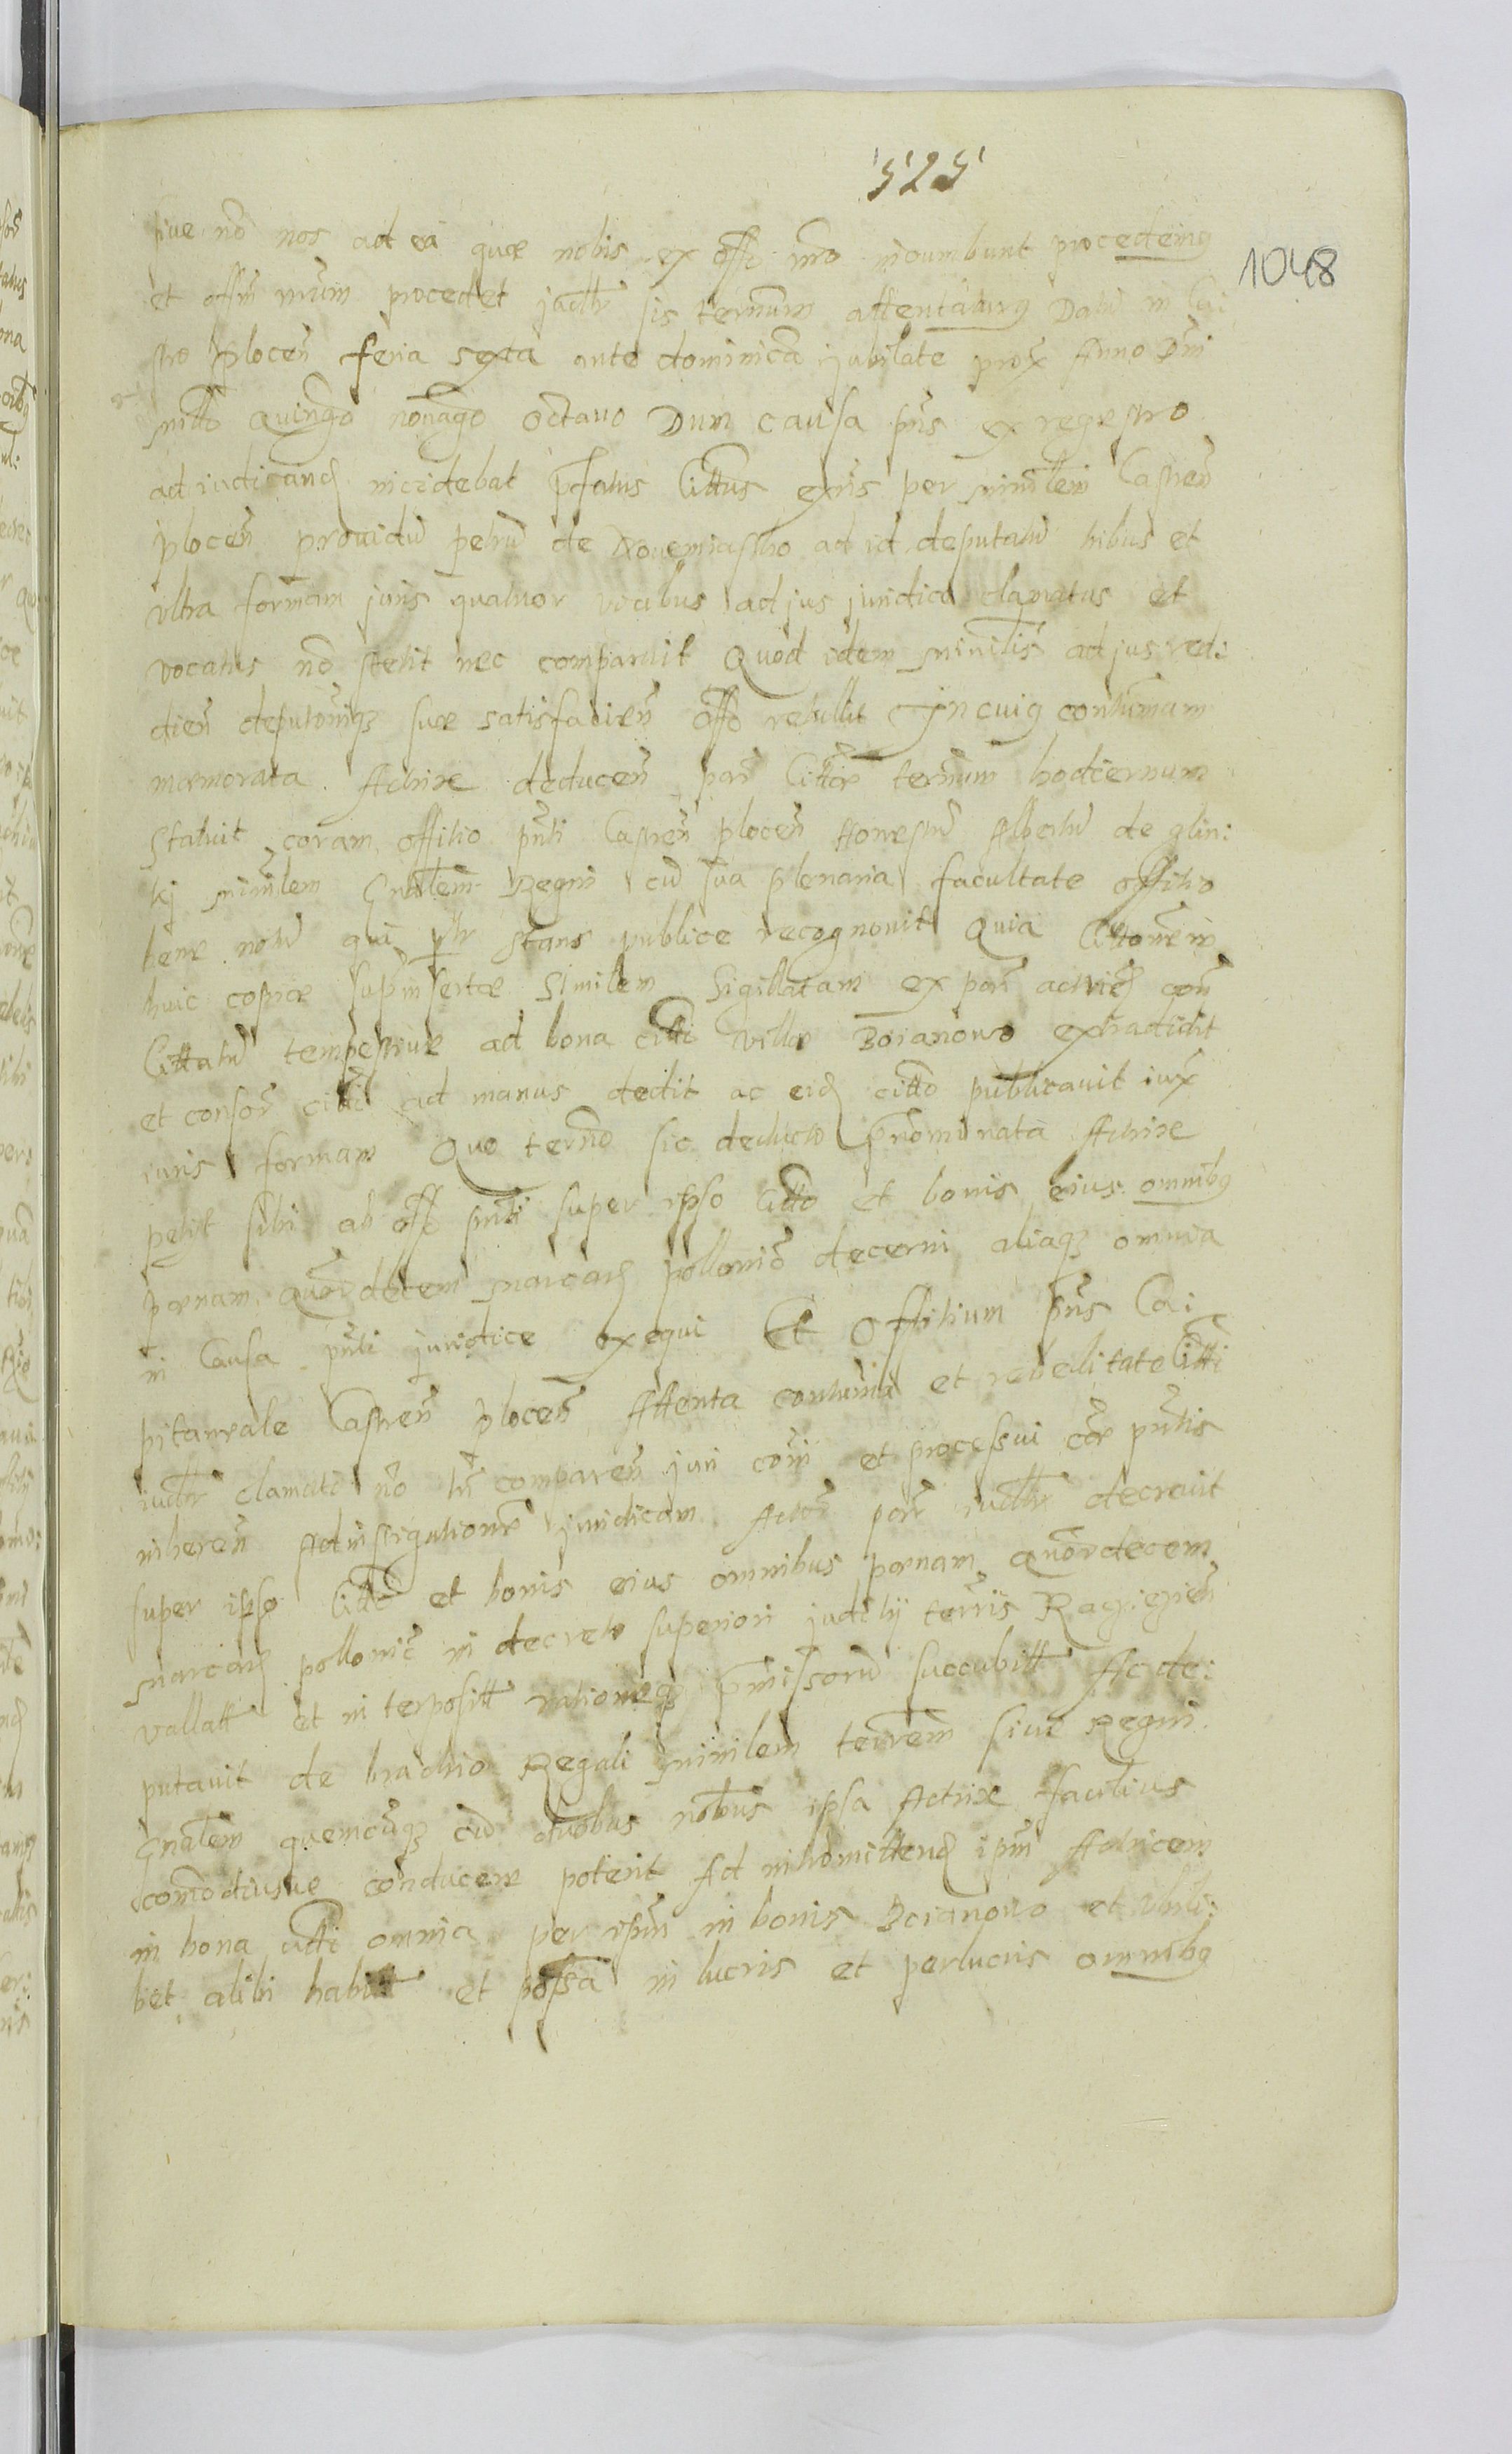 525
1048
sive nō nos ad ea quæ nobis ex offo nr̄o incumbunt procedemq
et offm nr̄um procedet judłr sis terminum attentaturq Datū in Ca:
stro plocen̄ feria sexta ante dominicā jubilate prox Anno Dn̄i
millō Quingō nonagō Octauo Dum causa pn̄s ex regestro
ad iudicand incidebat p̄fatus Cittus exn̄s per minrlem Castren̄
plocen̄ prouidū petrū de ad id deputatū tribus et
vltra formam juris quatuor vicibus ad jus juridice clamatus et
vocatus nō stetit nec comparuit Quod idem minrlis ad jus red:
dien̄ deputoniq suæ satisfacien̄ offo retullit In cuiq contumam
memorata Actrix deducen̄ par Cittæ terminum hodiernum
statuit coram offitio pn̄ti Castren̄ plocen̄ Honestū Albertū de glin:
kj minrlem Gn̄alem Regni cū sua plenaria facultate offitio
bene notū qui pr̄ stans publice recognouit Quia Cittonem
huic copiæ suprinsertæ similem Sigillatam ex par actricis con̄
Cittatū tempestiue ad bona citti villæ Boianowo extradidit
et consor citti ad manus dedit ac eid cittō publicauit iux
iuris formam Quo termō sic deducto p̄nominata Actrix
petit sibi ab offo pn̄ti super ipso Cittō et bonis eius omnibq
pœnam Quordecem marcar pollonic̄ decerni aliaq omnia
in Causa pn̄ti juridice exequi Et Offitium pn̄s Ca:
pitaneale Castren̄ plocen̄ Attenta contumā et rebelitate Citti
iudłr clamati nō tn̄ comparen̄ juri com̄i et processui cor pn̄tis
inheren̄ Ad instigationem juridicam Actoreæ par judłr decreuit
super ipso Cittō et bonis eius omnibus pœnam Quordecem
marcar pollonic̄ in decreto superiori juditij terris
vallatt et interpositt rationeq p̄missorū succubitt Ac de:
putauit de brachio Regali minrlem terrem siue Regni
Gn̄alem quemcūq cū duobus nobus ipsa Actrix facilius
comodiusue conducere poterit Ad intromittend ipm̄ Actricem
in bona citti omnia per ipm̄ in bonis Boianowo et vbili:
bet alibi habitt et possā in lucris et perlucris omnibq